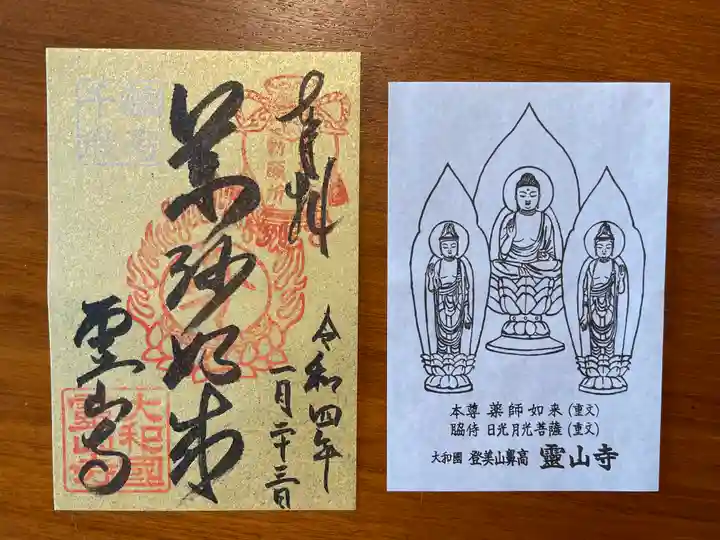 奉拝
薬師如来
霊山寺
令和四年
一月二十三日
大和國
霊山寺
本尊 薬師如来 (重文)
脇侍 日光月光菩薩 (重文)
大和國 登美山鼻高 靈山寺